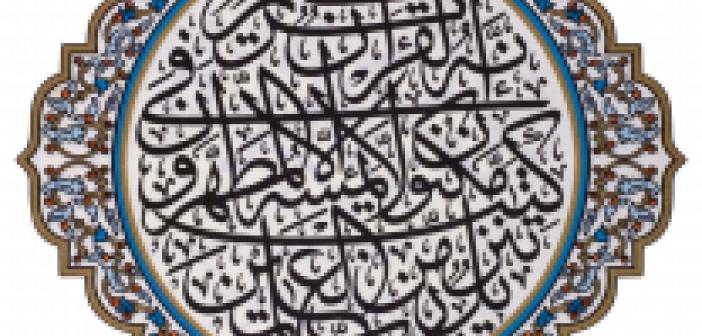 إنه لقرءان كريم في
كتب مكنون لا يمسه إلا المطهرون
تنزيل من رب العلمين